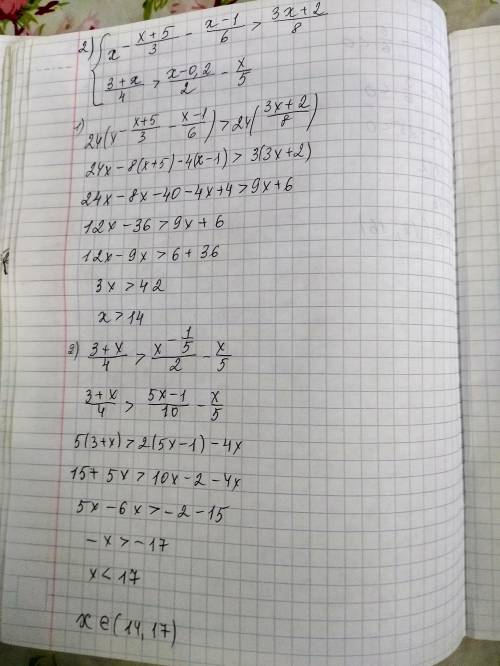 2) { x - (x+5)/3 - (x-1)/6 > (3x+2)/8
(3+x)/4 > (x-0,2)/2 - x/5
1) 24(x - (x+5)/3 - (x-1)/6) > 24((3x+2)/8)
24x-8(x+5)-4(x-1)>3(3x+2)
24x-8x-40-4x+4>9x+6
12x-36>9x+6
12x-9x>6+36
3x>42
x>14
2) (3+x)/4 > (x - 1/5)/2 - x/5
(3+x)/4 > (5x-1)/10 - x/5
5(3+x)>2(5x-1)-4x
15+5x>10x-2-4x
5x-6x>-2-15
-x>-17
x<17
x∈(14,17)